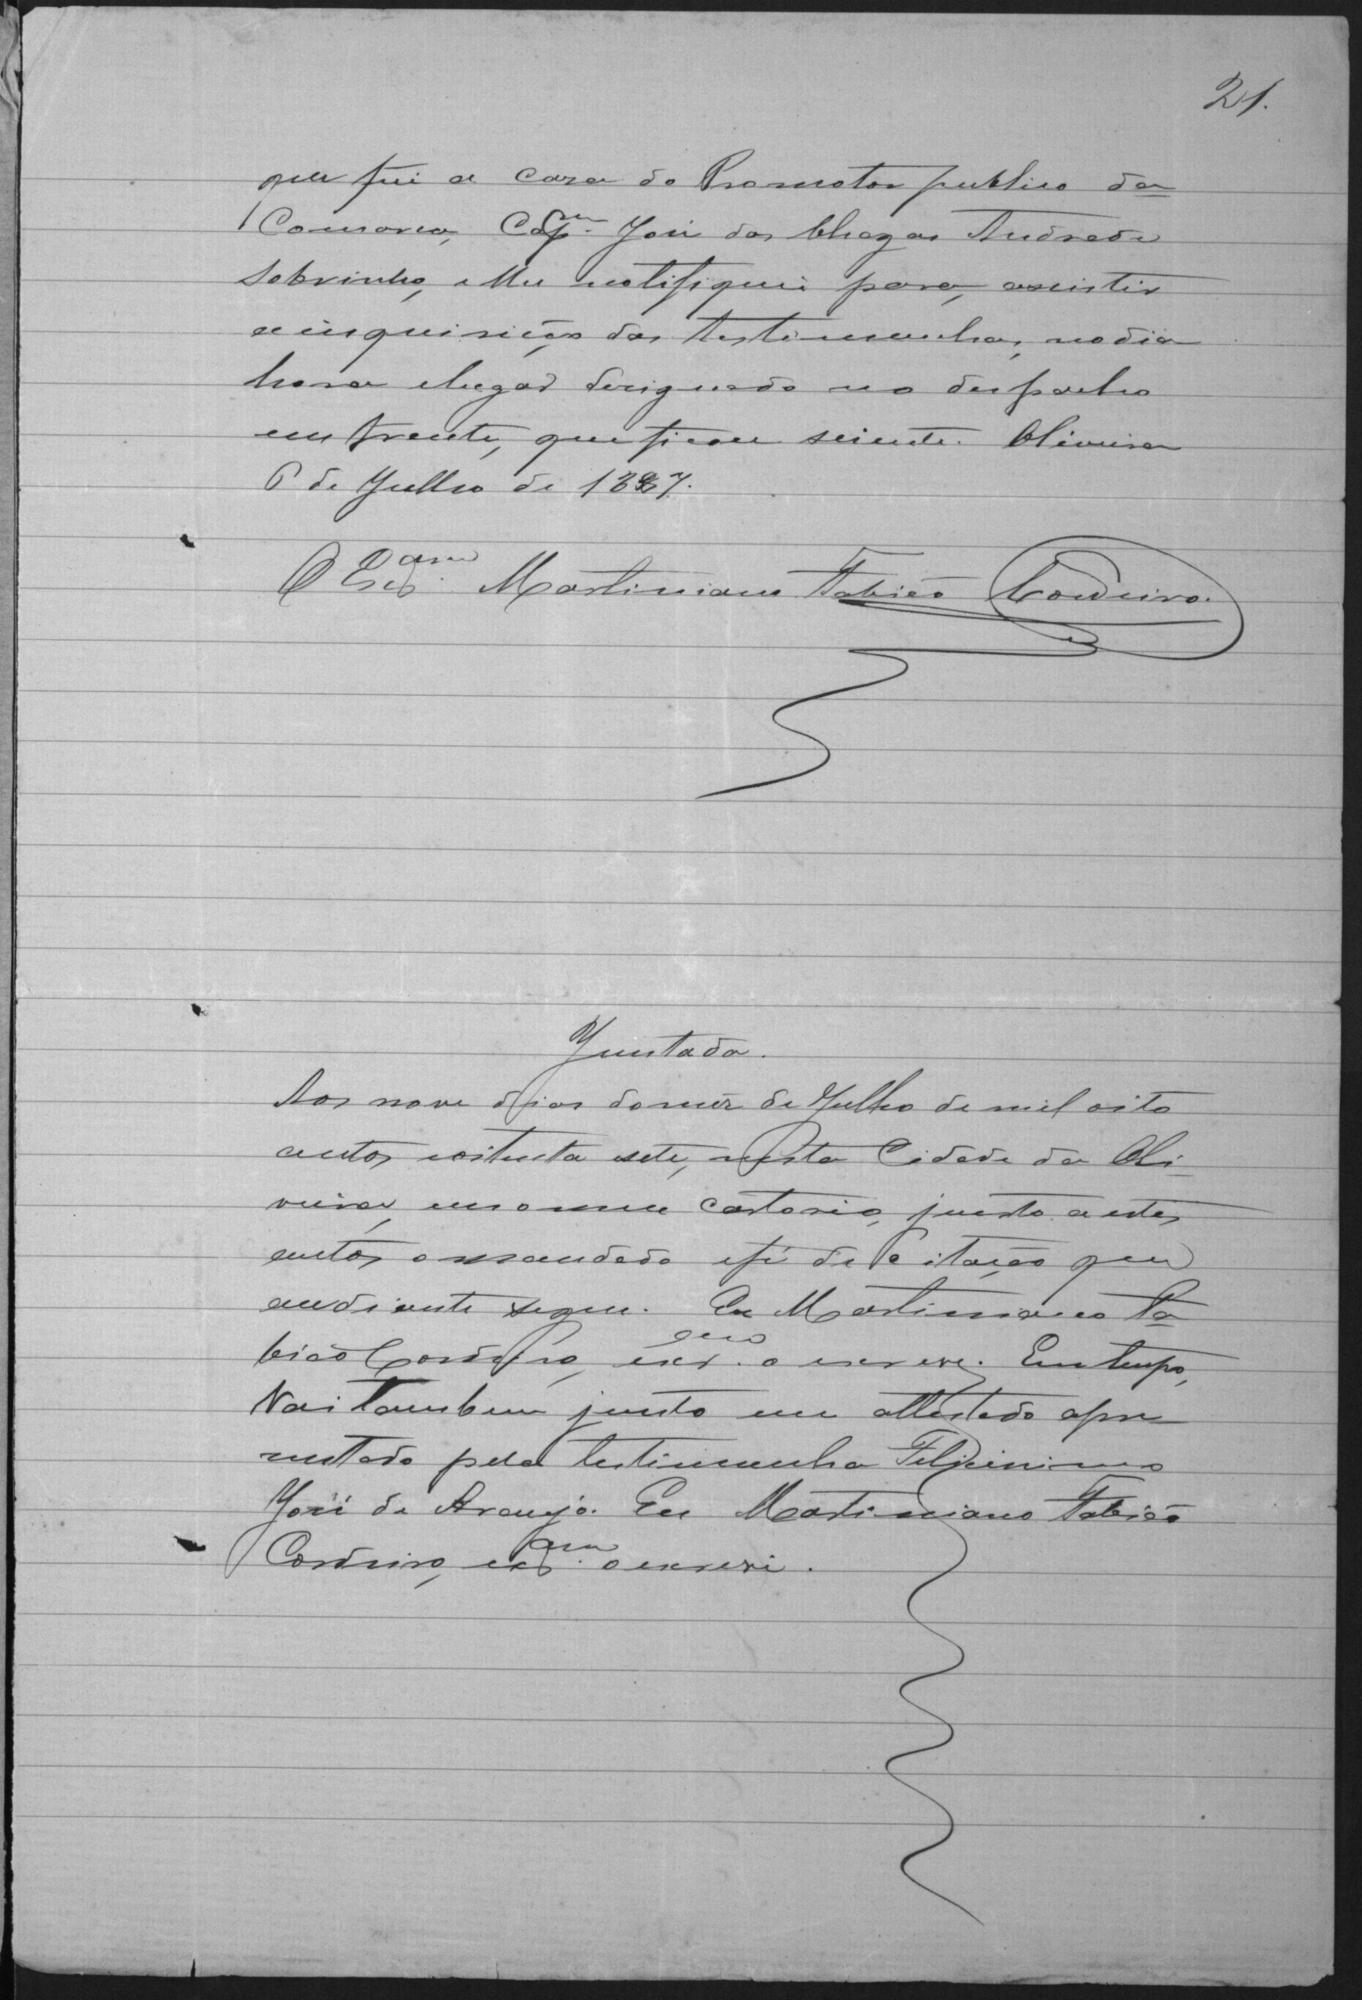 21.
que fui a casa do Promotor publico da
Comarca, Cap.m José das Chagas Andrade
Sobrinho, e lhe notifiquei para, assistir
a inquirição das testimunhas, no dia
hora e lugar designado no despacho
em frente, que ficou sciente. Oliveira
6 de Julho de 1887.
O Escr.am Martiniano Fabião Cordeiro.
Juntada.
Aos nove dias do mês de Julho de mil oito
centos e oitenta e sete, nesta Cidade da Oli-
veira, em o meu cartorio, junto a estes
autos o mandado e fé de citação que
ao diante segue. Eu Martiniano Fa-
bião Cordeiro, escr.am o escrevi. Em tempo,
Vai tambem junto um attestado apre-
sentado pela testimunha Feliciano
José de Araujo. Eu Martiniano Fabião
Cordeiro, escr.am o escrevi.